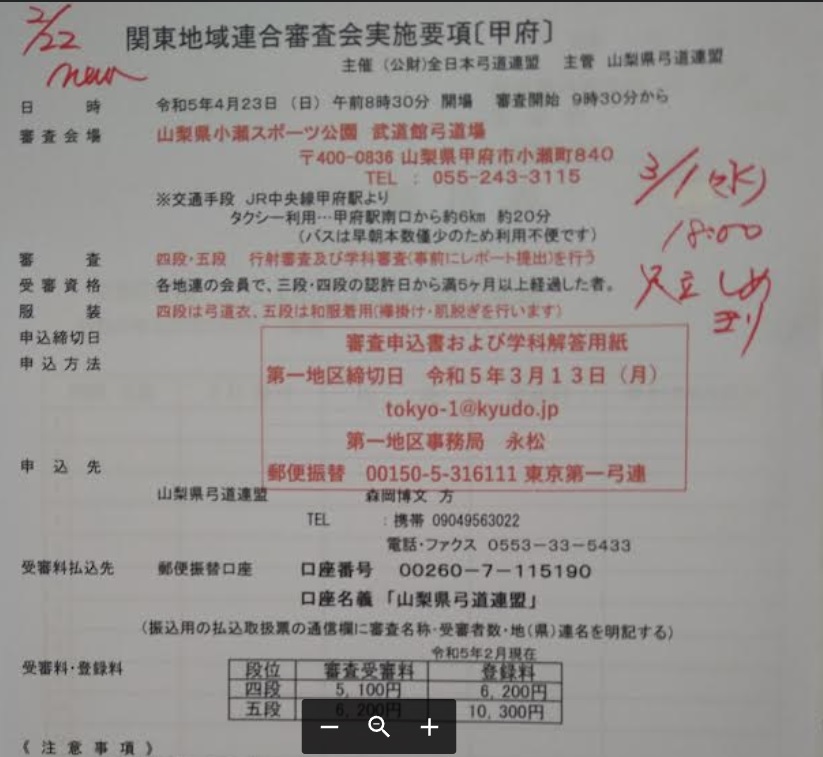 2/22
new
関東地域連合審査会実施要項〔甲府〕
主催 (公財)全日本弓道連盟 主管 山梨県弓道連盟
日時 令和5年4月23日（日）午前8時30分 開場 審査開始 9時30分から
審査会場 山梨県小瀬スポーツ公園 武道館弓道場
〒400-0836 山梨県甲府市小瀬町840
TEL : 055-243-3115
3/1(水)
18:00
足立 しめ
きり
※交通手段 JR中央線甲府駅より
タクシー利用…甲府駅南口から約6km 約20分
(バスは早朝本数僅少のため利用不便です)
審査 四段・五段 行射審査及び学科審査(事前にレポート提出)を行う
受審資格 各地連の会員で、三段・四段の認許日から満5ヶ月以上経過した者。
服装 四段は弓道衣、五段は和服着用(襷掛け・肌脱ぎを行います)
申込締切日
申込方法
審査申込書および学科解答用紙
第一地区締切日 令和５年３月１３日（月）
tokyo-1@kyudo.jp
第一地区事務局 永松
郵便振替 00150-5-316111 東京第一弓連
申込先
山梨県弓道連盟 森岡博文 方
TEL : 携帯 09049563022
電話・ファクス 0553-33-5433
受審料払込先 郵便振替口座 口座番号 00260-7-115190
口座名義「山梨県弓道連盟」
(振込用の払込取扱票の通信欄に審査名称・受審者数・地(県)連名を明記する)
令和5年2月現在
受審料・登録料
段位 審査受審料 登録料
四段 5,100円 6,200円
五段 6,200円 10,300円
《注意事項》